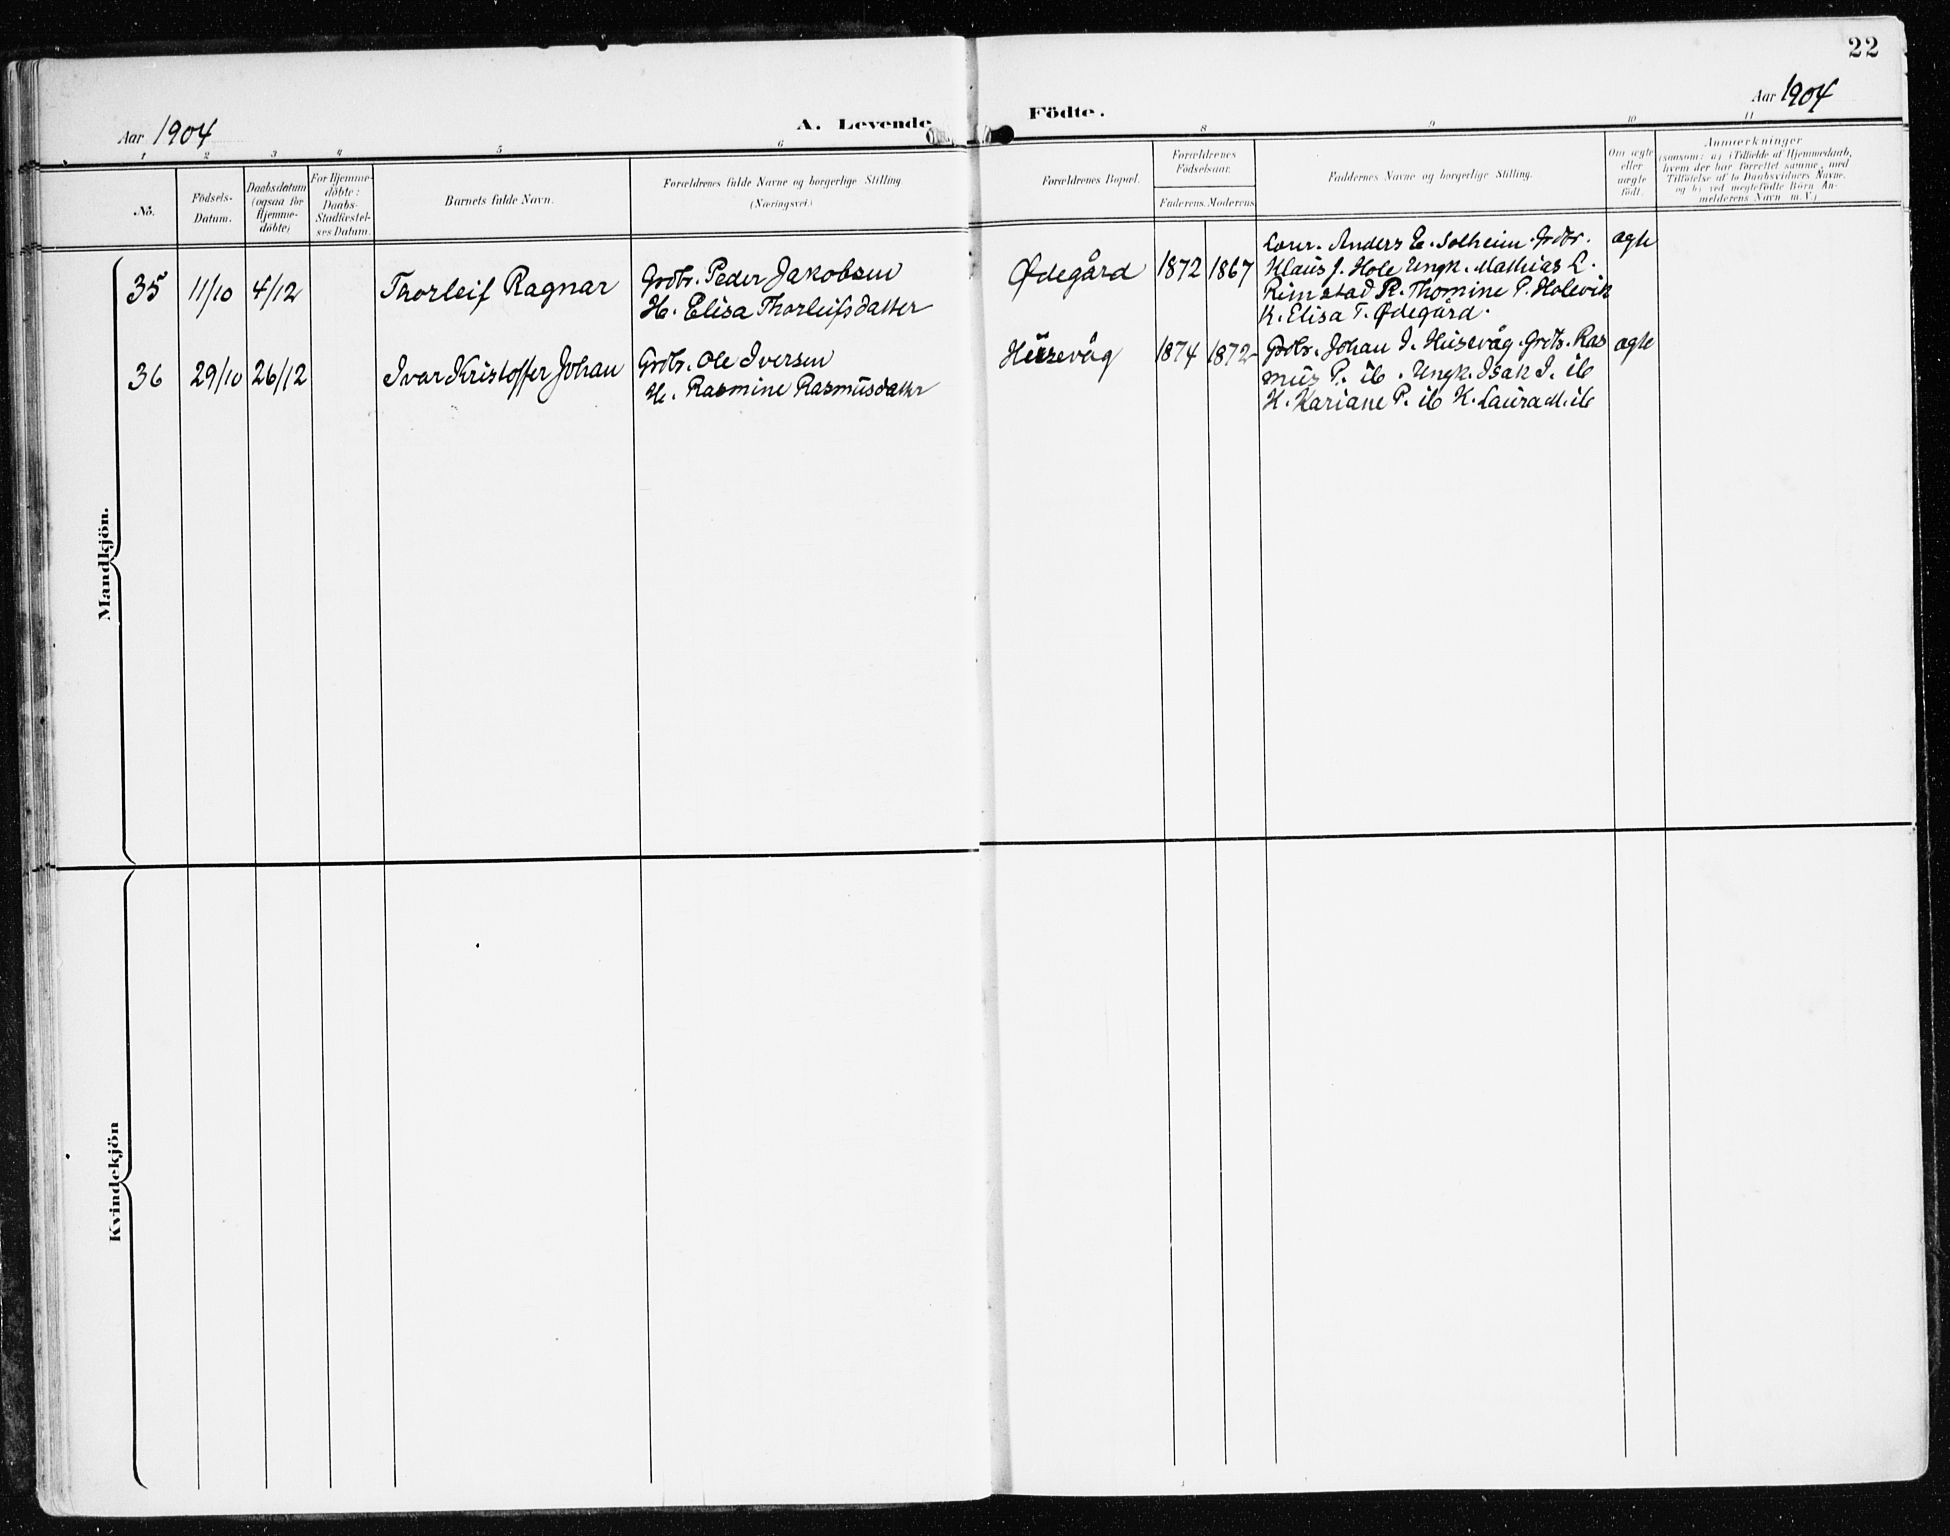 22
Aar 1904
A. Levende Födte.
Aar 1904
1 2 3 4 5 6 8 9 10 11
No.
Födsels-
Datum.
Daabsdatum
(ogsaa for
Hjemme-
döbte)
For Hjemme-
döbte:
Daabs-
Stadfæstel-
ses Datum.
Barnets fulde Navn.
Forældrenes fulde Navne og borgerlige Stilling
(Næringsvei.)
Forældrenes Bopæl.
Forældrenes
Födselsaar.
Faderens. Moderens.
Faddernes Navne og borgerlige Stilling.
Om ægte
eller
uægte
födt.
Anmærkninger
(saasom: a) i Tilfælde af Hjemmedaab,
hvem der har forrettet samme, med
Tilföielse af to Daabsvidners Navne.
og b) ved uægtefödte Börn An-
melderens Navn m. V.)
Mandkjön.
35 11/10 4/12 Thorleif Ragnar
Grdbr. Peder Jakobsen
H. Elisa Thorleifsdatter
Ødegård 1872 1867
Anders E. Solheim. Grdbr.
Klaus J. Hole Ungk. Mathias L.
Rimstad P. Thomine P. Holevik
K. Elisa T. Ødegård.
ægte
36 29/10 26/12 Ivar Kristoffer Johan
Grdbr. Ole Iversen
H. Rasmine Rasmusdatter
Husevåg 1874 1872
Grdbr. Johan I. Husevåg. Grdb. Ras
mus P. ib. Ungk. Isak I. ib
K. Kariane P. ib K. Laura M. ib
ægte
Kvindekjön